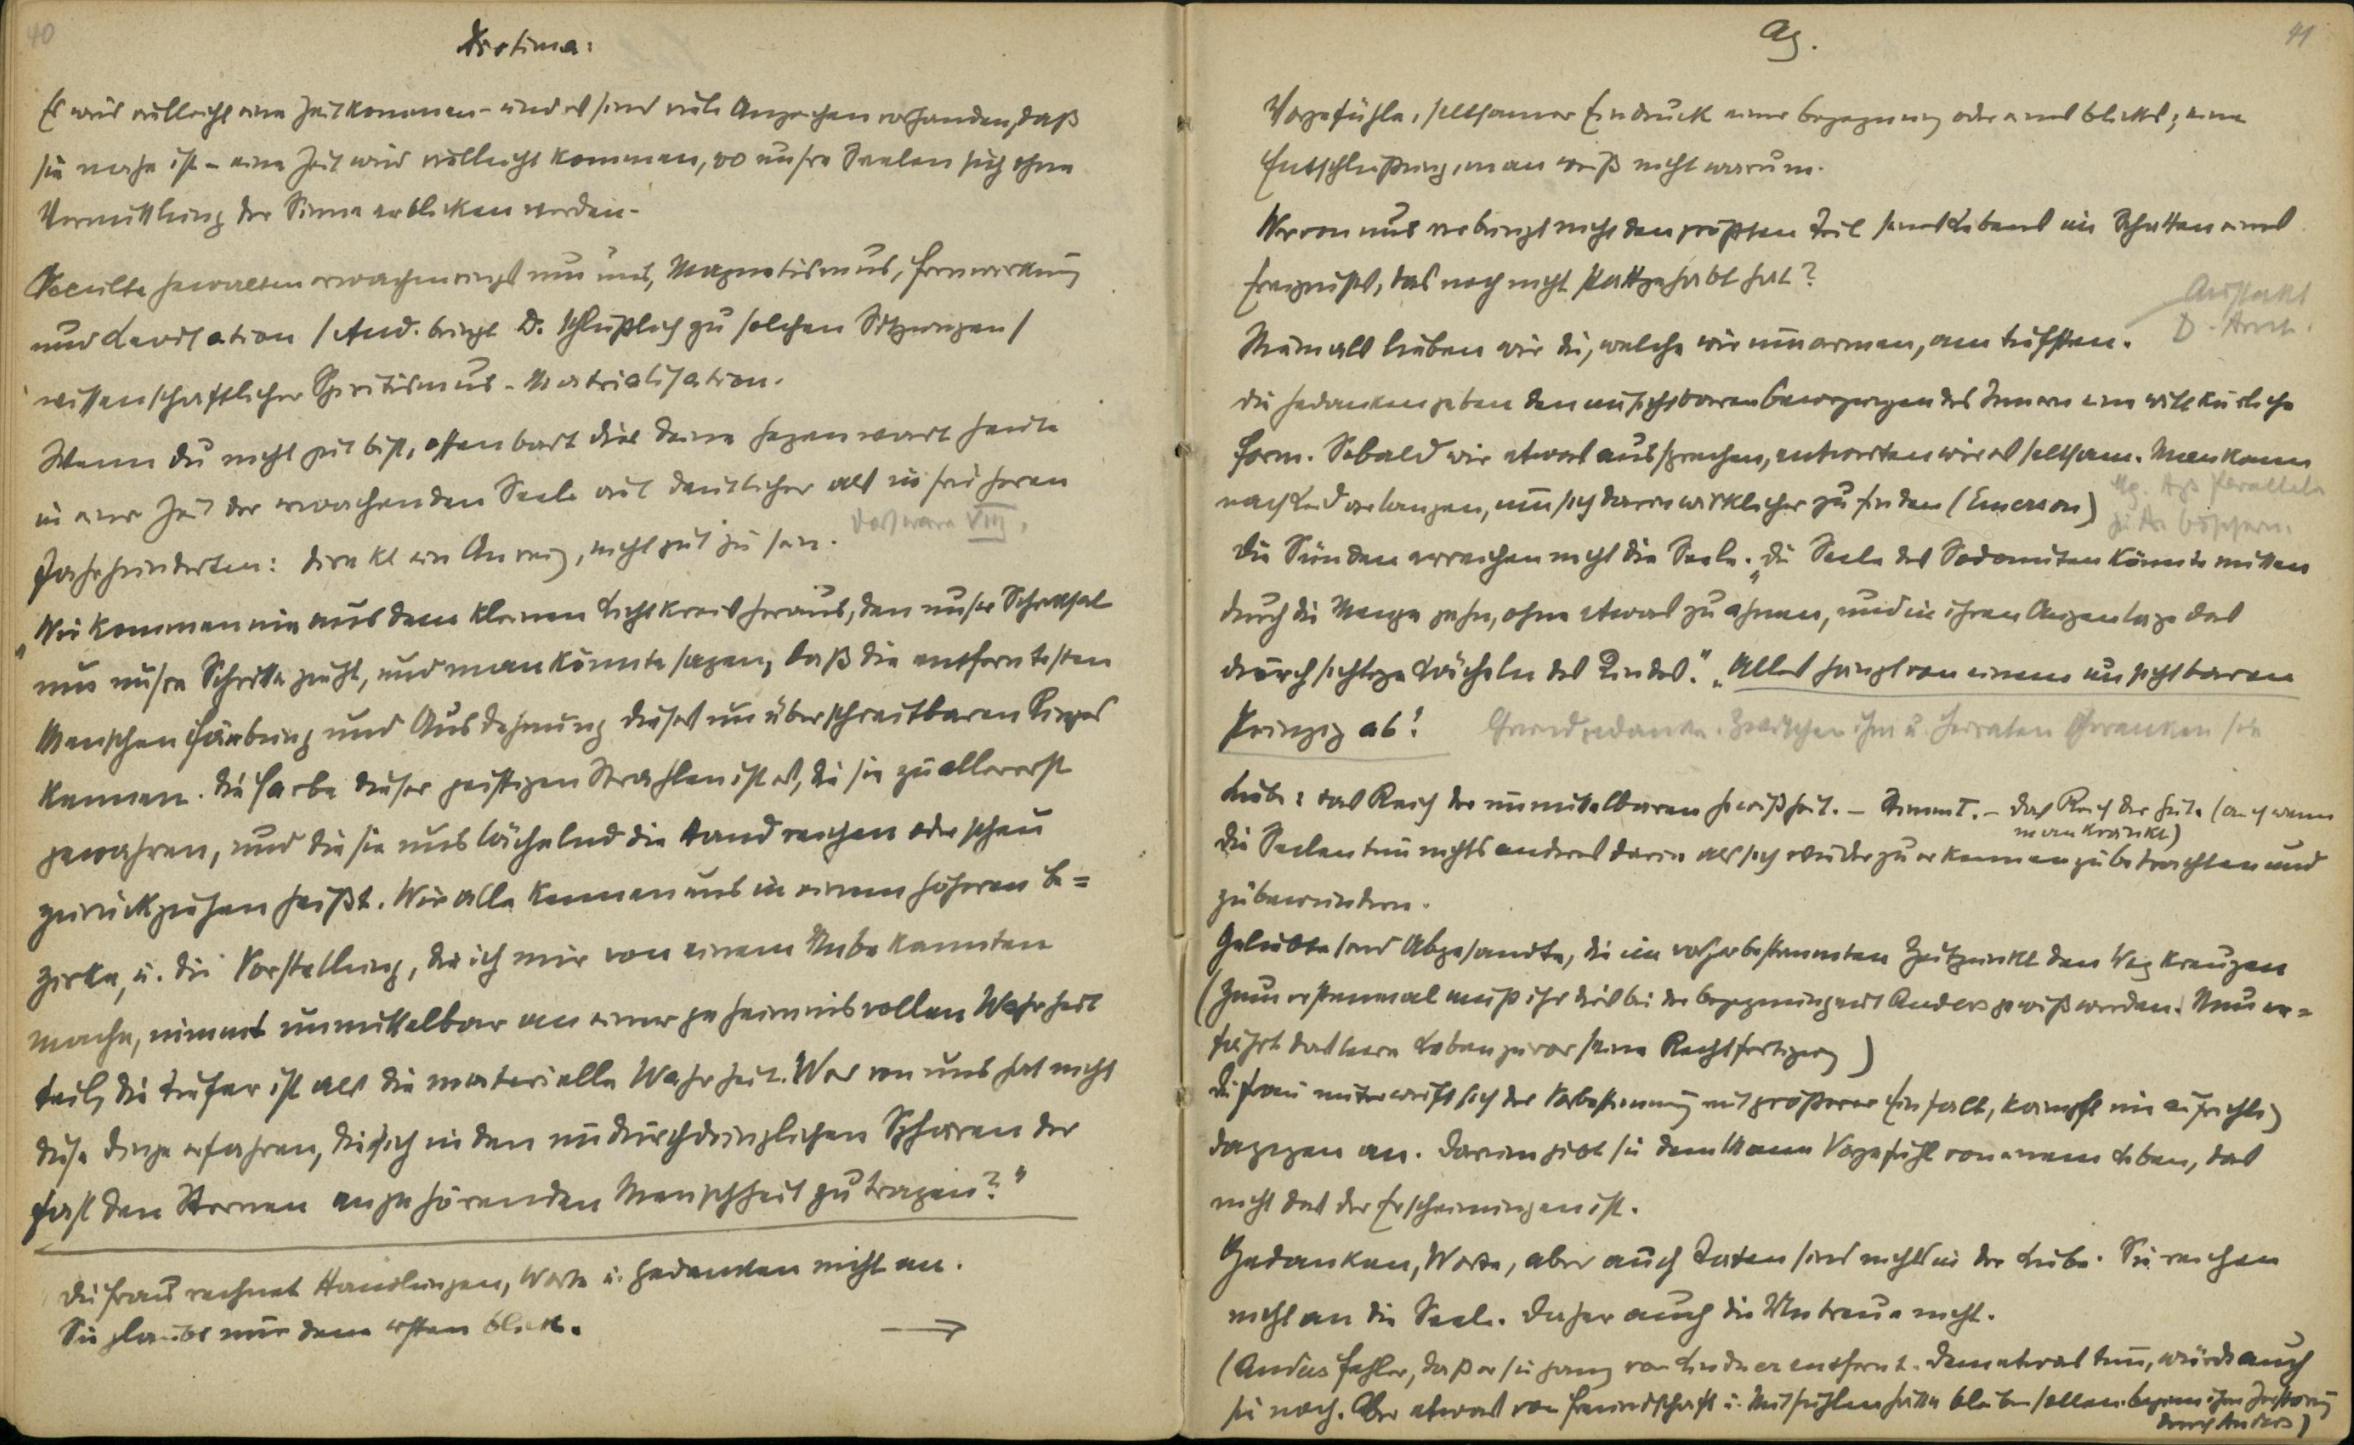 40
Diotima:
Es wird vielleicht eine Zeit kommen - und es sind viele Anzeichen vorhanden, daß
sie nahe ist - eine Zeit wird vielleicht kommen, wo unsre Seelen sich ohne
Vermittlung der Sinne erblicken werden -
Occulte Gewalten erwachen rings um uns, Magnetismus, Fernwirkung
und Levitation / And. bringt D. schließlich zu solchen Sitzungen /
wissenschaftlicher Spiritismus - Materialisation.
Wenn du nicht gut bist, offenbart dies deine Gegenwart heute
in einer Zeit der erwachenden Seele viel deutlicher als in früheren
Jahrhunderten: direkt ein Anreiz, nicht gut zu sein. Das wäre VIII.
„Wir kommen nie aus dem kleinen Lichtkreis heraus, den unser Schicksal
um unsre Schritte zieht, und man könnte sagen, daß die entferntesten
Menschen Färbung und Ausdehnung dieses unüberschreitbaren Ringes
kennen. Die Farbe dieser geistigen Strahlen ist es, die sie zu allererst
gewahren, und die sie uns lächelnd die Hand reichen oder scheu
zurückziehen heißt. Wir alle kennen uns in einem höheren Be=
zirke, u. die Vorstellung, die ich mir von einem Unbekannten
mache, nimmt unmittelbar an einer geheimnisvollen Wahrheit
teil, die tiefer ist als die materielle Wahrheit. Wer von uns hat nicht
diese Dinge erfahren, die sich in den undurchdringlichen Sphären der
fast den Sternen angehörenden Menschheit zutragen?"
Die Frau rechnet Handlungen, Worte u. Gedanken nicht an.
Sie glaubt nur dem ersten Blick.
→
41
Ag.
Vorgefühle, seltsamer Eindruck einer Begegnung oder eines Blicks; eine
Entschließung, man weiß nicht warum.
Wer von uns verbringt nicht den größten Teil seines Lebens im Schatten eines
Ereignisses, das noch nicht stattgehabt hat?
D - Arnh.
Niemals lieben wir die, welche wir umarmen, am tiefsten.
Die Gedanken geben den unsichtbaren Bewegungen des Innern eine willkürliche
Form. Sobald wir etwas aussprechen, entwerten wir es seltsam. Man kann
nach Leid verlangen, um sich darin wirklicher zu finden (Emerson)
Die Sünden erreichen nicht die Seele. „Die Seele des Sodomiten könnte mitten
durch die Menge gehn, ohne etwas zu ahnen, und in ihren Augen läge das
durchsichtige Lächeln des Kindes." „Alles hängt von einem unsichtbaren
Prinzip ab!
Liebe: das Reich der unmittelbaren Gewißheit. - Stimmt. - das Reich der Güte (auch wenn
man kränkt)
Die Seelen tun nichts anderes darin als sich wiederzuerkennen zu betrachten und
zu bewundern.
Geliebte sind Abgesandte, die im vorherbestimmten Zeitpunkt den Weg kreuzen
(Zum erstenmal muß ihr dies bei der Begegnung mit Anders gewiß werden. Nun er=
fährt das leere Leben zuvor seine Rechtfertigung)
Die Frau unterwirft sich der Vorbestimmung mit größerer Einfalt, kämpft nie aufrichtig
dagegen an. Darum gibt sie dem Mann Vorgefühl von einem Leben, das
nicht das der Erscheinungen ist.
Gedanken, Worte, aber auch Taten sind nichts in der Liebe. Sie reichen
nicht an die Seele. Daher auch die Untreue nicht.
(Anders Fehler, daß er sie ganz von Lindner entfernt. Dem etwas tun, würde auch
sie noch. Aber etwas von Freundschaft u. Mitfühlen hätte bleiben sollen. Beginn ihrer Zerstörung
durch Anders)